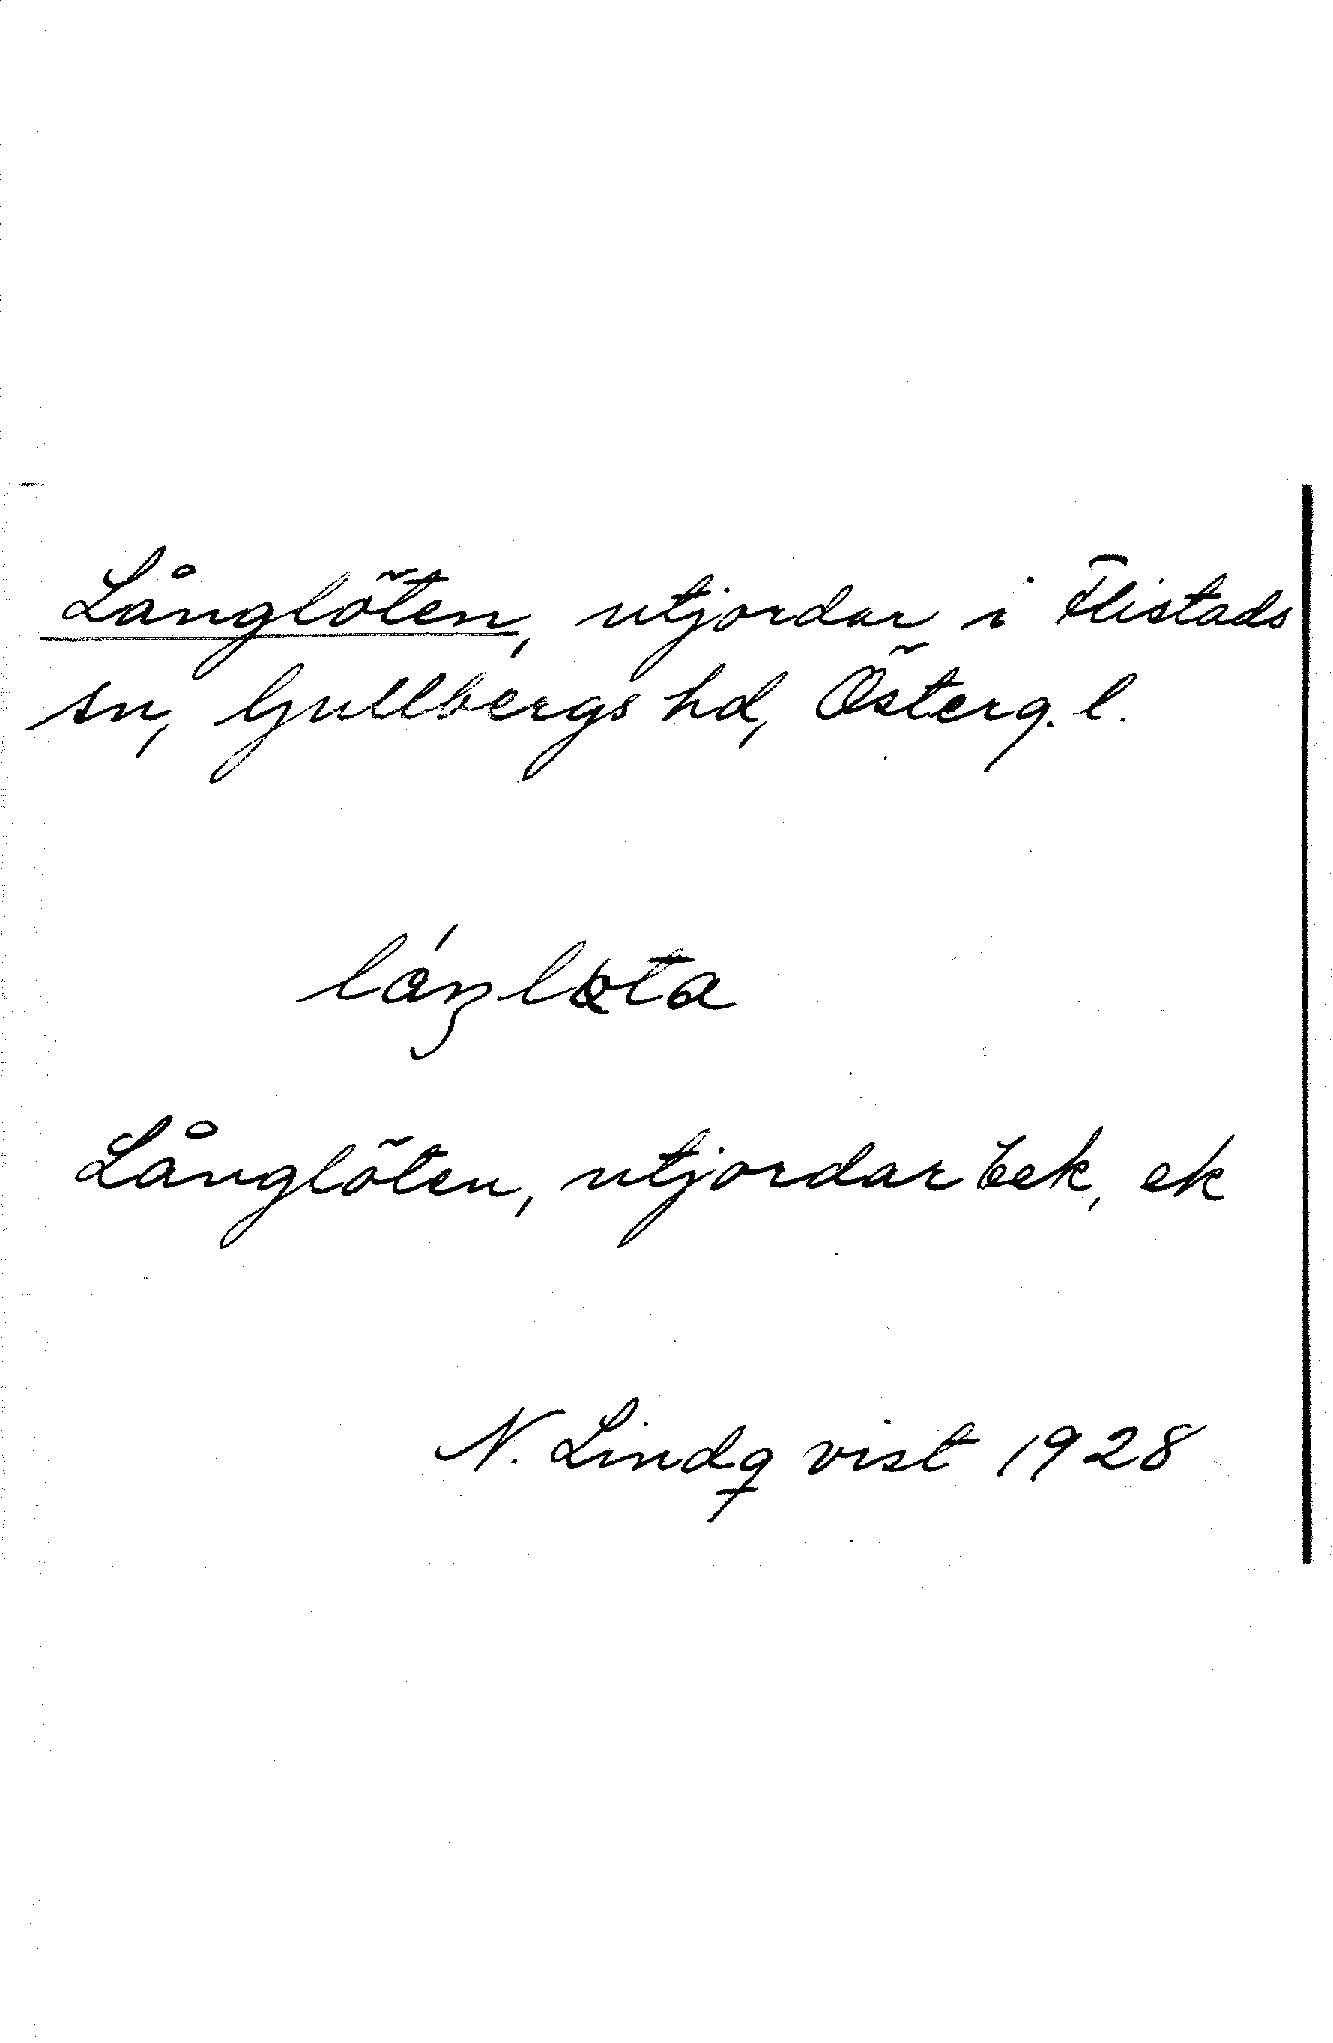 Långlöten, utjordar i Flistads
sn, Gullbergs hd, Österg. l.
Långlöten, utjordar Eek, ek
N. Lindqvist 1928